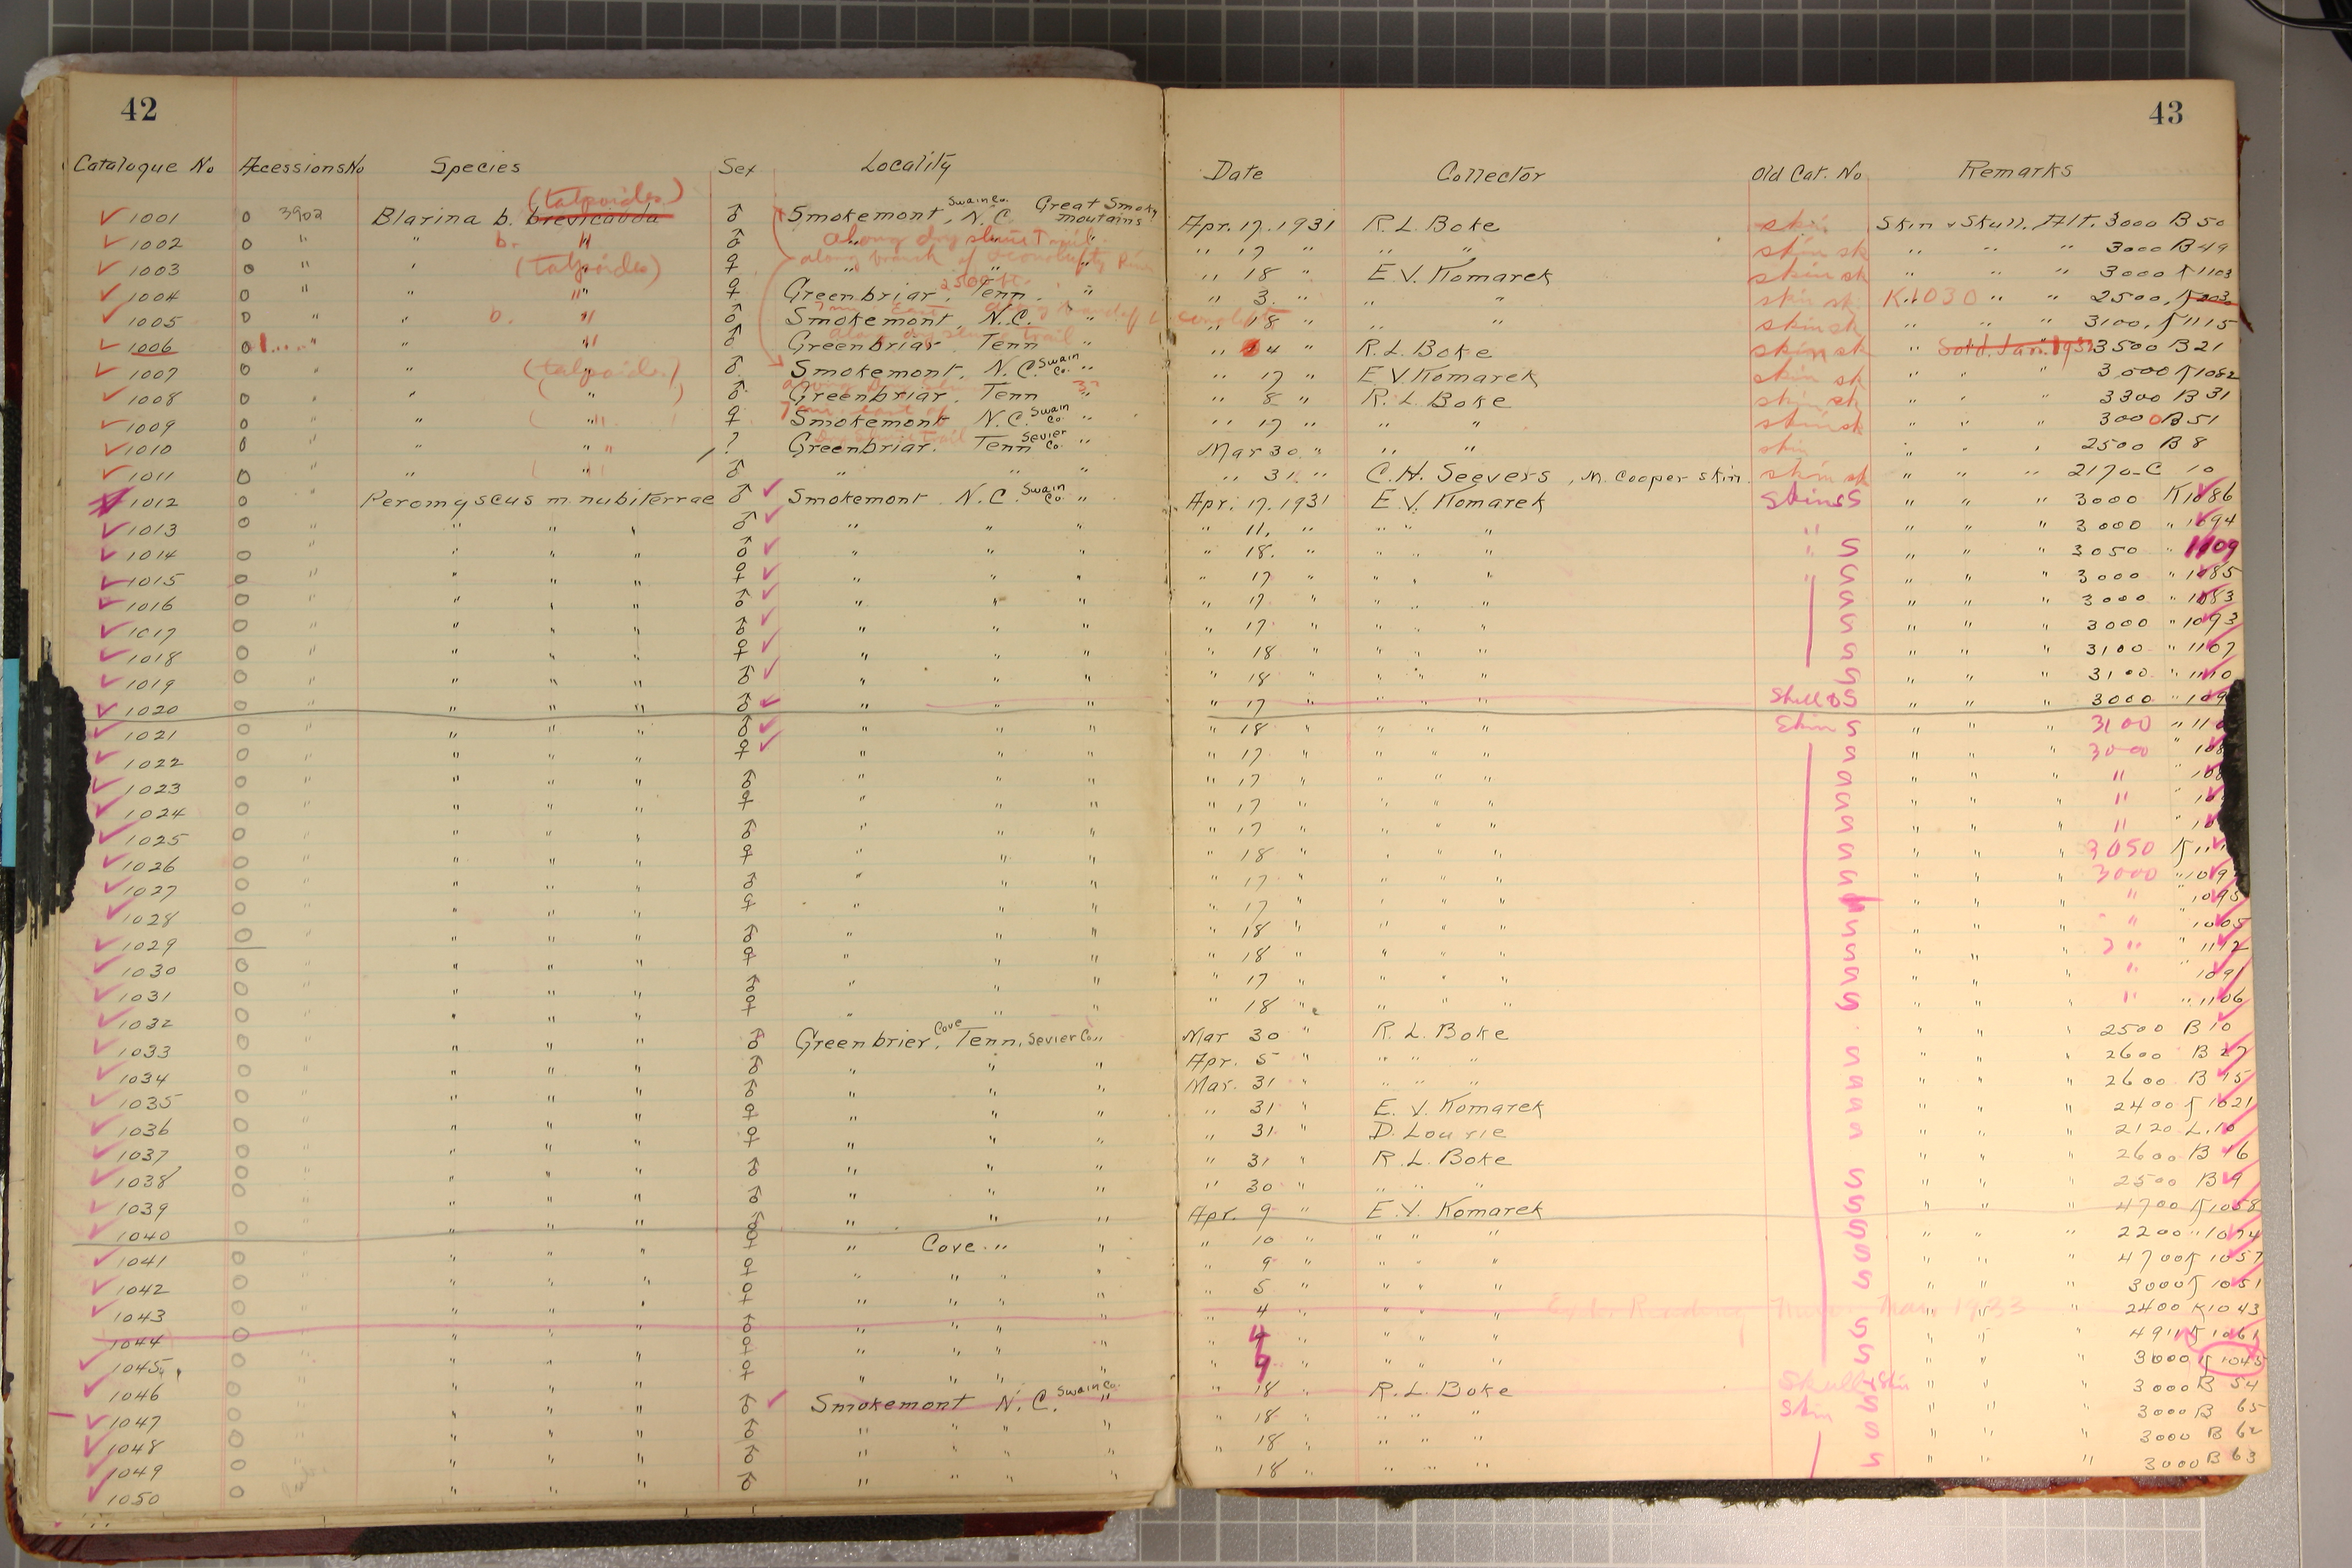 42
43
Catalogue No Accessions No Species Sex Locality Date Collector Old Cat. No Remarks
(talpoides)
1001 0 3902 Blarina b. brevicauda ♂ Smokemont, Swain Co. N.C. Great Smoky moutains Apr. 17. 1931 R. L. Boke skin Skin & Skull. Alt. 3000 B 50
1002 0 " " b. " ♂ along dry sluice Trail. " 17 " " " skin sk " " " 3000 B 49
1003 0 " " (talpoides) ♀ along branch of " 18 " E. V. Komarek skin sk " " " 3000 K 1103
1004 0 " " " ♀ Greenbriar, 2500 ft. Tenn. " " 3. " " " skin sk K.1030 " " 2500,
1005 0 " " b. " ♂ Smokemont, N.C. " " 18 " " " skin sk " " " 3100, K 1115
1006 0 " " " ♂ Greenbriar. Tenn " " 4 " R. L. Boke skin sk " Sold. Jan. 193 3500 B 21
1007 0 " " (talpoides) ♂ Smokemont, N.C. Swain Co. " " 17 " E. V. Komarek skin sk " " 3000 K 1082
1008 0 " " " ♂ Greenbriar, Tenn " 8 " R. L. Boke skin sk " " " 3300 B 31
1009 0 " " " ♀ Smokemont N.C. Swain Co. " " 17 " " " skin sk " " " 3000 B 51
1010 0 " " " ? Greenbriar. Tenn Sevier Co. " Mar 30 " " " skin " " " 2500 B 8
1011 0 " " " ♂ " " " " 31 " C. H. Seevers, M. Cooper skin. skin sk " " " 2170-C 10
1012 0 " Peromyscus m. nubiterrae ♂ Smokemont N.C. Swain Co. " Apr. 17. 1931 E. V. Komarek Skin S " " " 3000 K 1086
1013 0 " " " " ♂ " " " " 11, " " " " " " " 3000 " 1094
1014 0 " " " " ♂ " " " " 18. " " " " S " " " 3050 " 1109
1015 0 " " " " ♀ " " " " 17 " " " " S " " " 3000 " 1085
1016 0 " " " " ♂ " " " " 17 " " " S " " " 3000 " 1083
1017 0 " " " " ♂ " " " " 17 " " " S " " " 3000 " 1093
1018 0 " " " " ♀ " " " " 18 " " " S " " " 3100 " 1107
1019 0 " " " " ♂ " " " " 18 " " " S " " " 3100 " 1110
1020 0 " " " " ♂ " " " " 17 " " " S " " " 3000
1021 0 " " " " ♂ " " " " 18 " " " Skin S " " " 3100
1022 0 " " " " ♀ " " " " 17 " " " S " " " 3000
1023 0 " " " " ♂ " " " " 17 " " " S " " " "
1024 0 " " " " ♀ " " " " 17 " " " S " " " "
1025 0 " " " " ♂ " " " " 17 " " " S " " " "
1026 0 " " " " ♀ " " " " 18 " " " S " " " 3050
1027 0 " " " " ♂ " " " " 17 " " " S " " " 3000
1028 0 " " " " ♀ " " " " 17 " " " " " " " " 1095
1029 0 " " " " ♂ " " " " 18 " " " S " " " " " 1005
1030 0 " " " " ♀ " " " " 18 " " " S " " " " " 1112
1031 0 " " " " ♂ " " " " 17 " " " S " " " " " 1091
1032 0 " " " " ♀ " " " " 18 " " " S " " " " " 1106
1033 0 " " " " ♂ Greenbrier, Cove Tenn, Sevier Co. " Mar 30 " R. L. Boke " " " 2500 B 10
1034 0 " " " " ♂ " " " Apr. 5 " " " " S " " " 2600 B 27
1035 0 " " " " ♂ " " " Mar. 31 " " " " S " " " 2600 B 15
1036 0 " " " " ♀ " " " " 31 " E. V. Komarek S " " " 2400 K 1021
1037 0 " " " " ♀ " " " " 31 " D. Lourie S " " " 2120 L. 10
1038 0 " " " " ♂ " " " " 31 " R. L. Boke " " " 2600 B 16
1039 0 " " " " ♂ " " " " 30 " " " " S " " " 2500 B 9
1040 0 " " " " ♂ " " " Apr. 9 " E. V. Komarek S " " " 4700 K 1058
1041 0 " " " " ♀ " Cove " " " 10 " " " " S " " " 2200 " 1074
1042 0 " " " " ♀ " " " " 9 " " " " S " " " 4700 K 1057
1043 0 " " " " ♀ " " " " 5 " " " " S " " " 3000 K 1051
1044 " " " ♂ " " " " 4 " " " " 1933 " " 2400 K 1043
1045 0 " " " ♀ " " " " 9 " " " " S " " " K 1061
1046 0 " " " ♀ " " " " 4 " " " " S " " " 3000 K 1045
1047 0 " " " ♂ Smokemont N.C. Swain Co. " " 18 " R. L. Boke Skull & Skin " " " 3000 B 54
1048 0 " " " ♂ " " " " 18 " " " " Skin S " " " 3000 B 65
1049 0 " " " ♂ " " " " 18 " " " " S " " 3000 B 62
1050 0 " " " ♂ " " " " 18 " " " " S " " " 3000 B 63